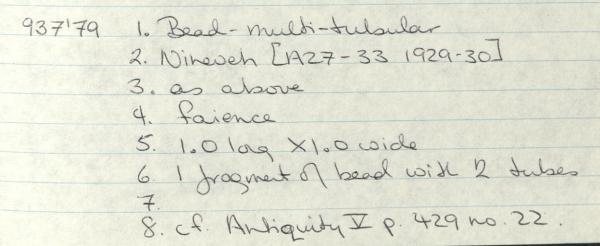 937'79 1. Bead - multi-tubular
2. Nineveh [A27-33 1929-30]
3. as above
4. faience
5. 1.0 long x 1.0 wide
6 1 fragment of bead with 2 tubes
7.
8. cf. Antiquity V p. 429 no. 22.